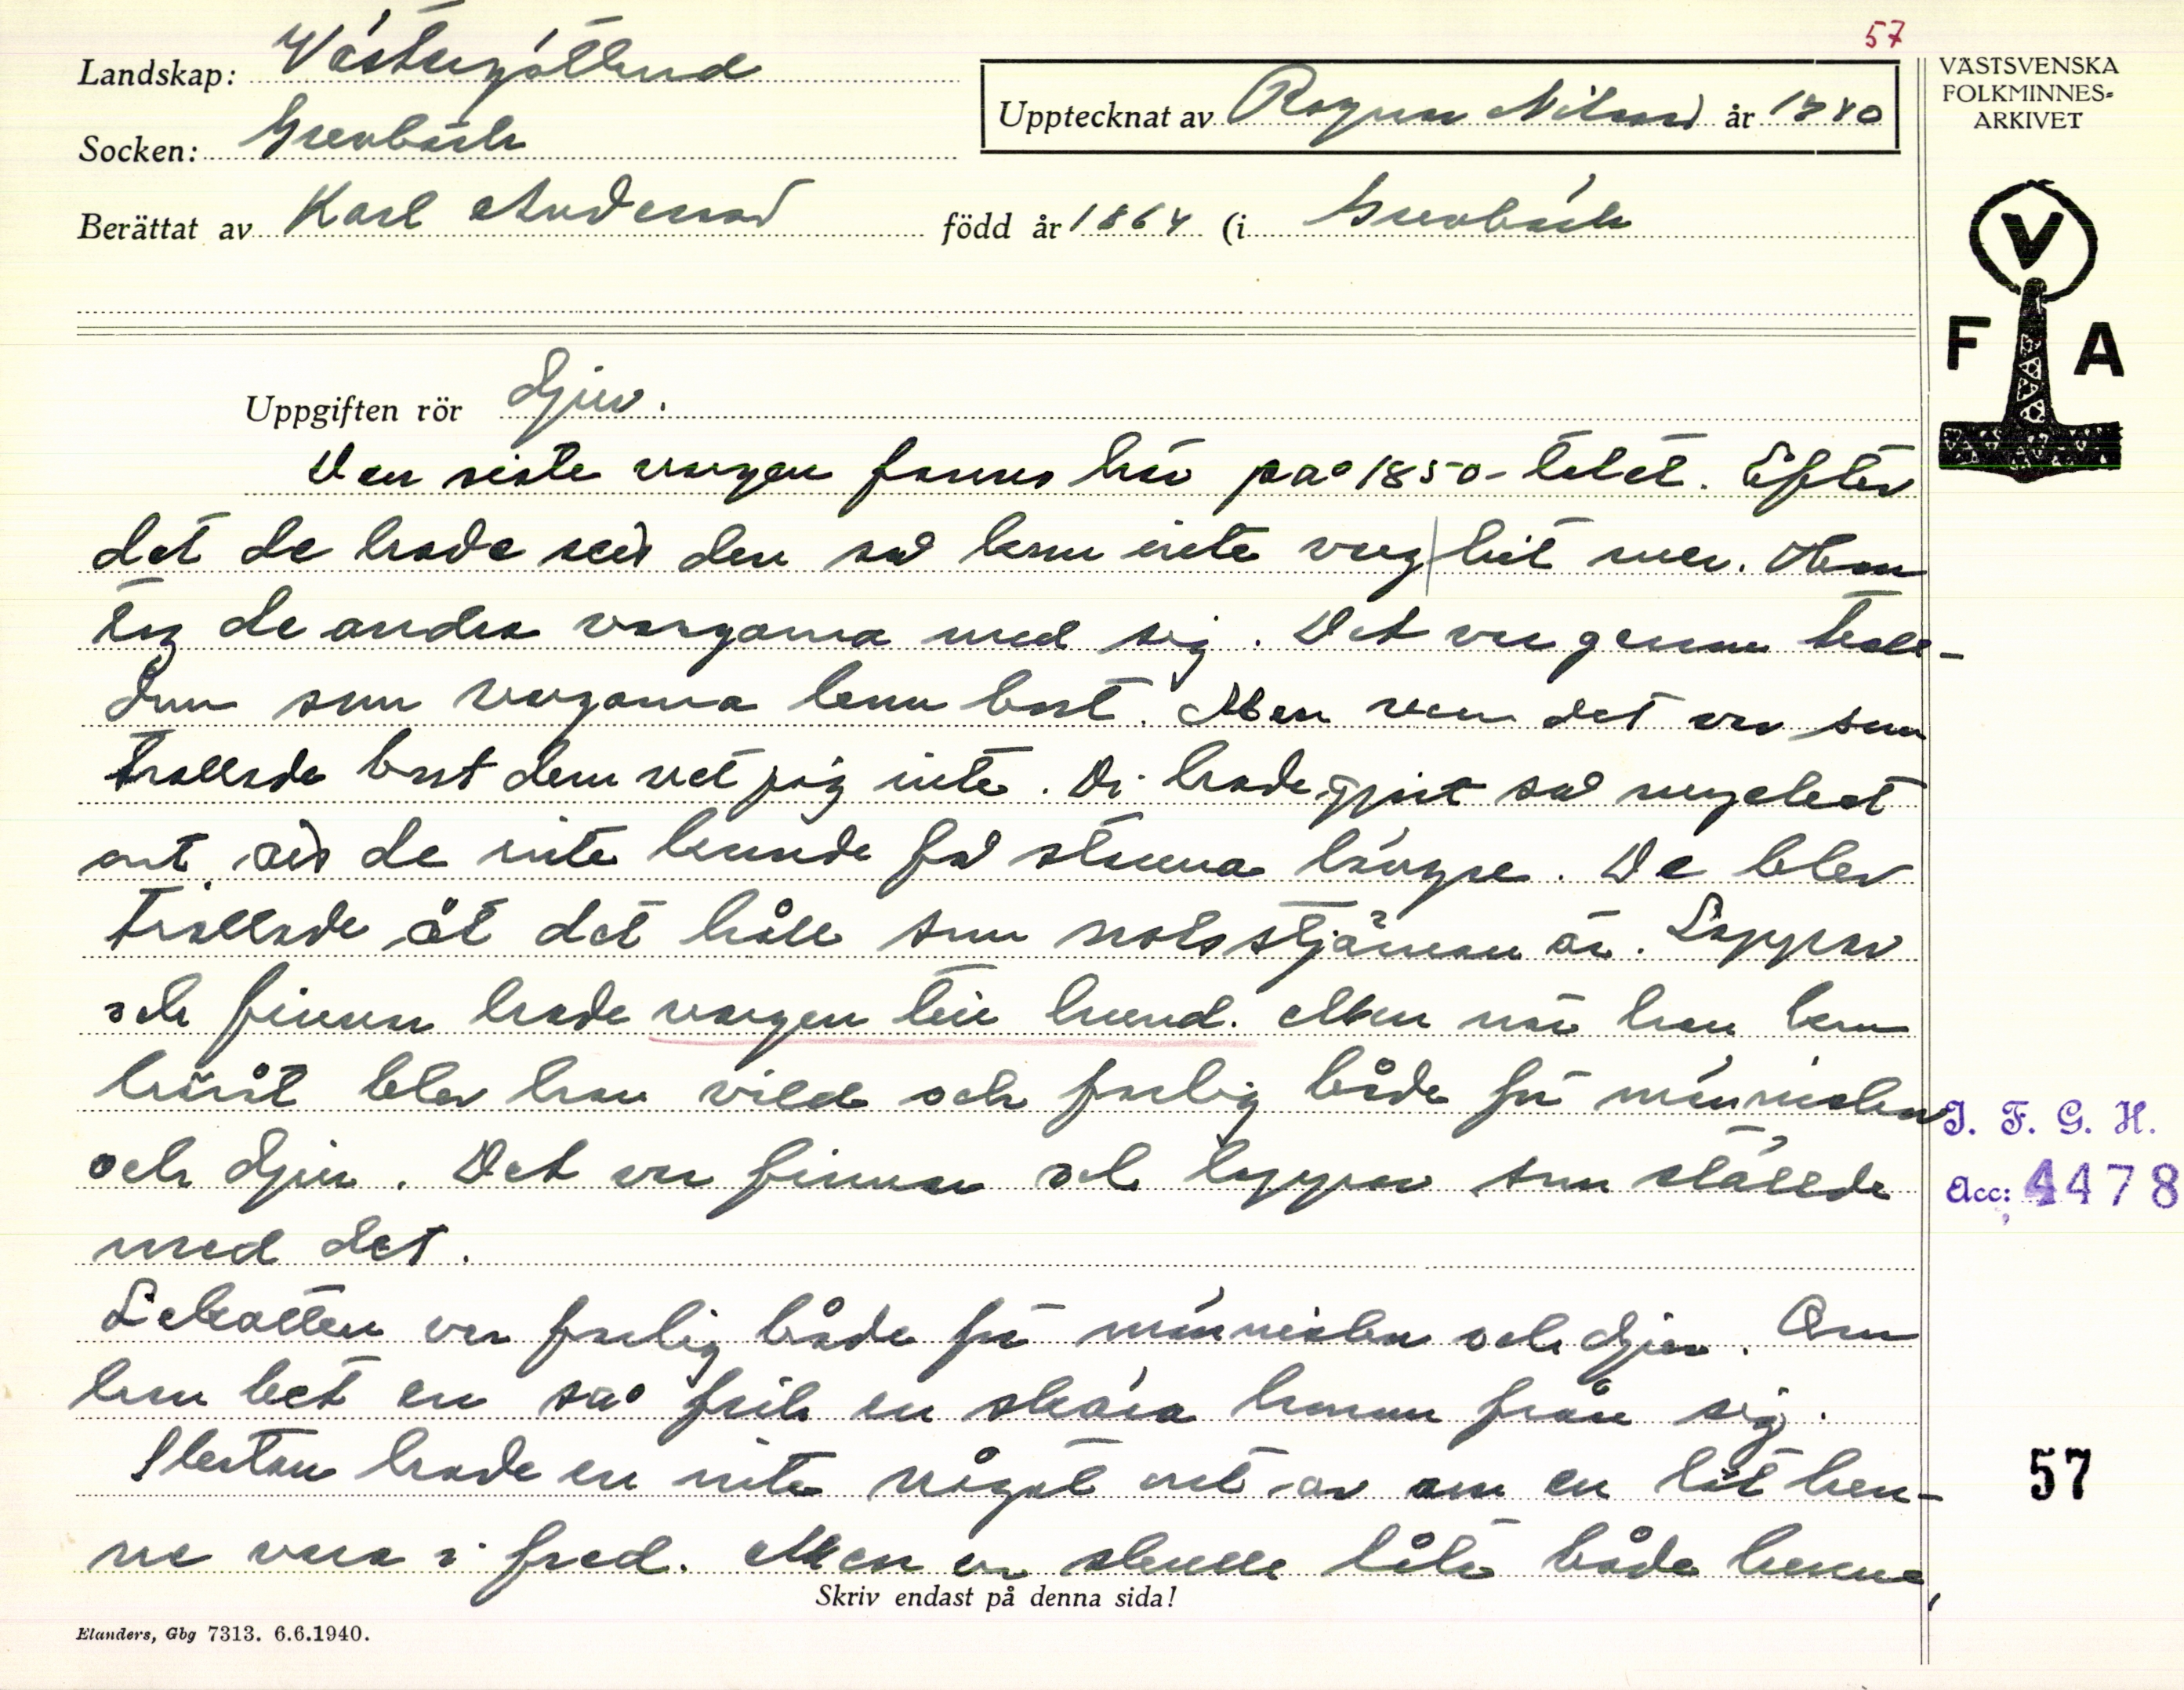 57
Landskap: Västergötland
VÄSTSVENSKA
FOLKMINNES-
ARKIVET
Upptecknat av Ragnar Nilsson år 1940
Socken: Grevbäck
Berättat av Karl Andersson född år 1864 (i Grevbäck
V
F A
Uppgiften rör djur.
Den siste vargen fanns här på 1850-talet. Efter
det de hade sett den så kom inte varg hit mer. Han
tog de andra vargarna med sig. Det var genom troll-
dom som vargarna kom bort. Men vem det var som
trollade bort dem vet jag inte. Di hade gjort så mycket
ont så de inte kunde få stanna längre. De blev
trollade åt det håll som nordstjärnan är. Lappar
och finnar hade vargen till hund. Men när han kom
hitåt blev han vild och farlig både för människor
och djur. Det var finnar och lappar som ställde
med det.
I. F. G. H.
Acc: 4478
Lekatten var farlig både för människor och djur. Om
hon bet en så fick en skära honom från sig.
Skatan hade en inte något ont av om en lät hen-
57
ne vara i fred. Men en skulle låta både henne,
Skriv endast på denna sida!
Elanders, Gbg 7313. 6.6.1940.